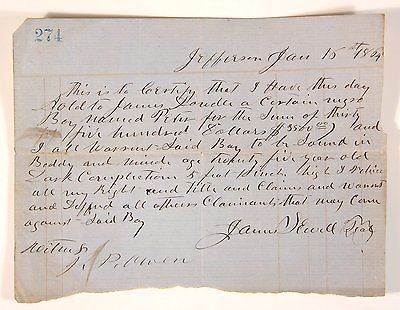 274
Jefferson Jan 15th 1864
This is to Certify that I Have this day
Sold to James Louder a Certain negro
Boy named Peter for the Sum of thirty
five hundred Dollars ($3500.00) and
I all Warrant Said Boy to be Sound in
Boddy and minde age twenty five year old
Dark Complection 5 feet high I
all my Right and Title and Claims and warrant
and all others Claimants that may Com
against Said Boy
James Sewell Seal
Witness
J. P. Owen